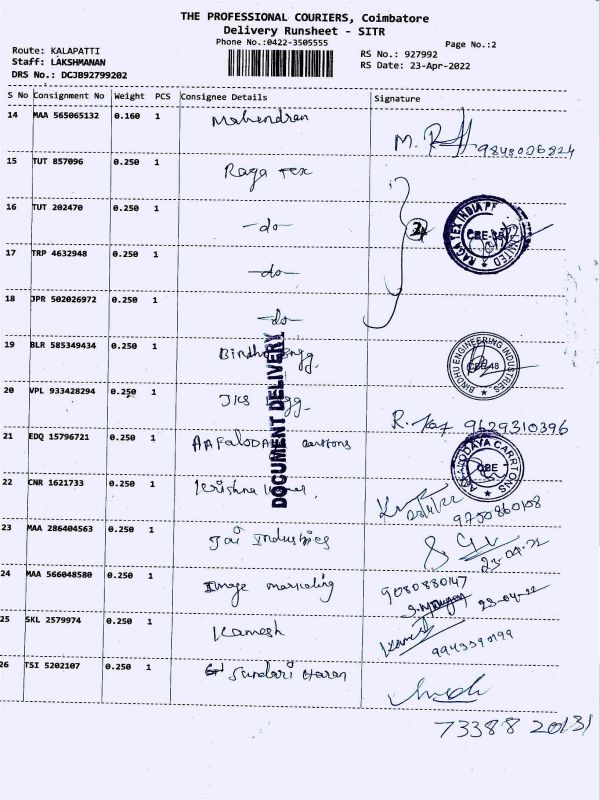 THE PROFESSIONAL COURIERS, Coimbatore
Delivery Runsheet - SITR
Phone No.:0422-3505555
Page No.:2
Route: KALAPATTI
Staff: LAKSHMANAN
DRS No.: DCJB92799202
RS No.: 927992
RS Date: 23-Apr-2022
S No Consignment No Weight PCS Consignee Details Signature
14 MAA 565065132 0.160 1 Mahendran
M.
15 TUT 857096 0.250 1 Raga Tex
16 TUT 202470 0.250 1 -do-
RAGA TEX INDIA
CBE
17 TRP 4632948 0.250 1 -do-
18 JPR 502026972 0.250 1 -do-
19 BLR 585349434 0.250 1 Bindhu Engg.
BINDHU ENGINEERING INDUSTRIES
CBE-48
DOCUMENT DELIVERY
20 VPL 933428294 0.250 1
R. 9629310396
21 EDQ 15796721 0.250 1 carrtons
CARRTONS
CBE
22 CNR 1621733 0.250 1 Krishna
23 MAA 286404563 0.250 1 Jai Industries
24 MAA 566048580 0.250 1 Image marketing
9080880147
23-04-22
25 SKL 2579974 0.250 1 Kamesh
26 TSI 5202107 0.250 1 Sundari Haran
73388 20131